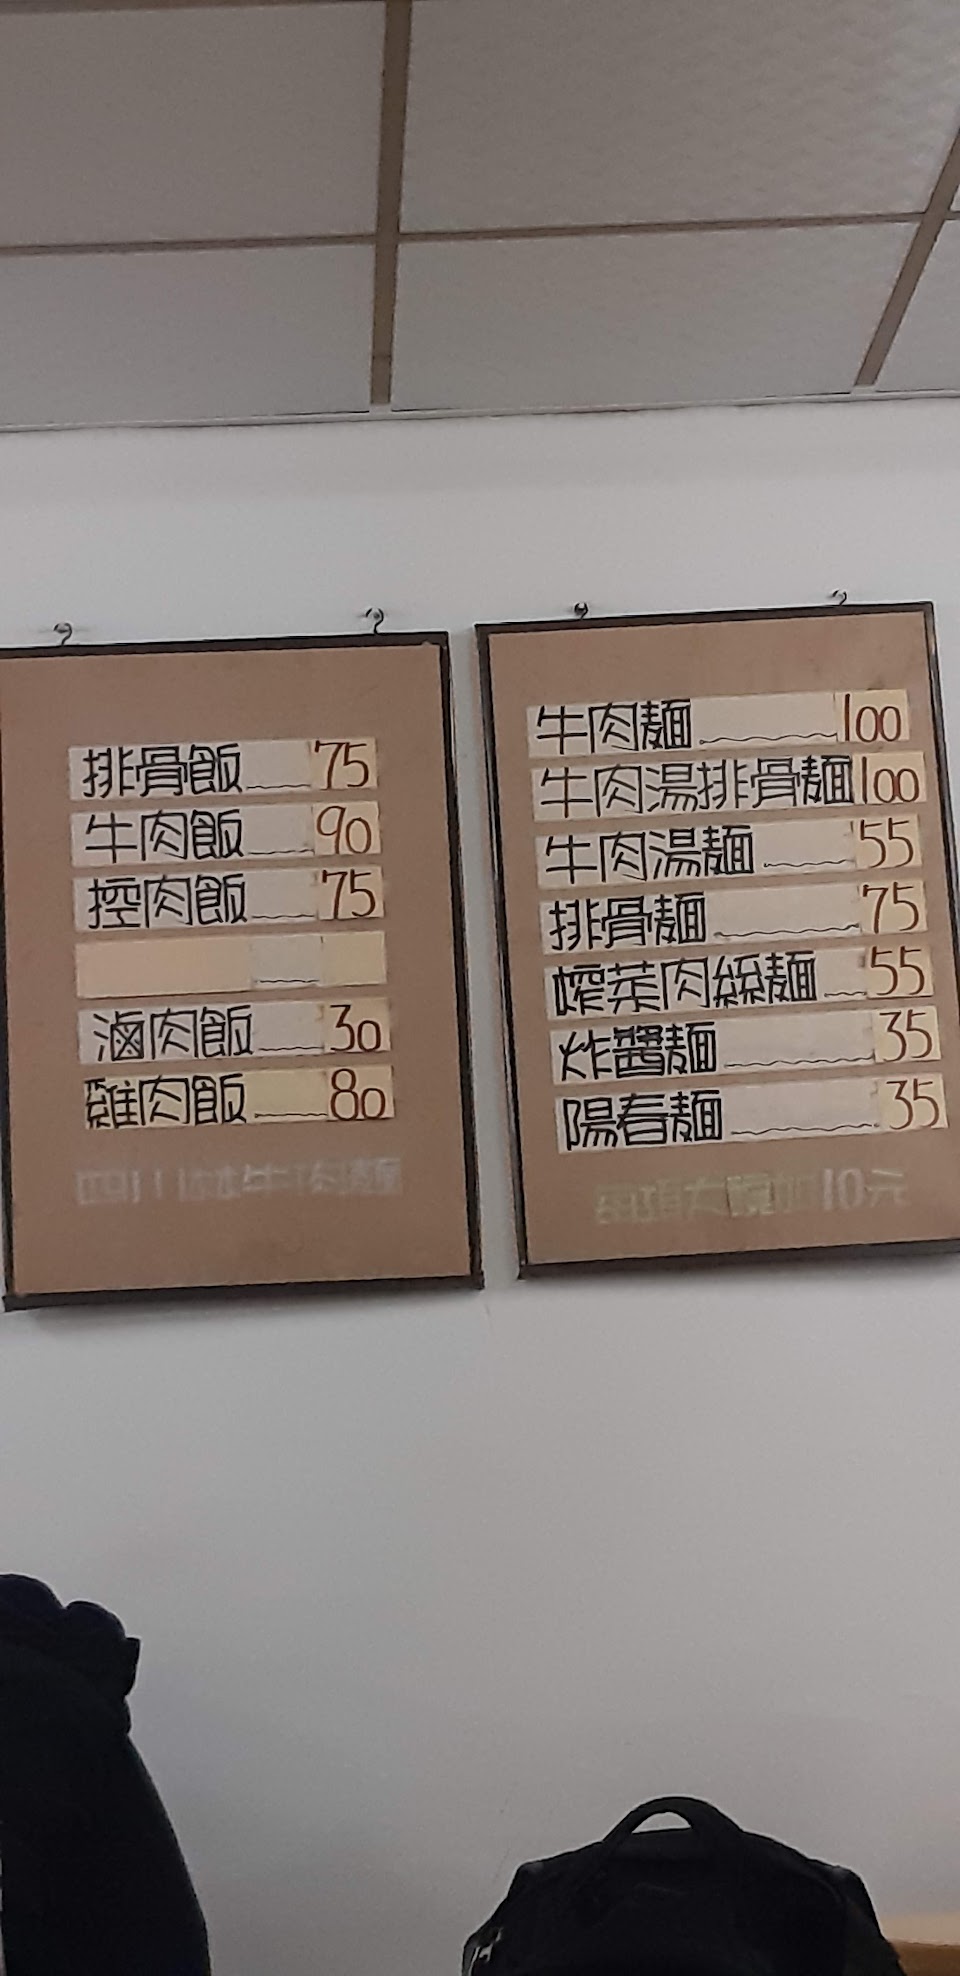 排骨飯 75
牛肉飯 90
控肉飯 75
滷肉飯 30
雞肉飯 80
牛肉麵 100
牛肉湯排骨麵 100
牛肉湯麵 55
排骨麵 75
榨菜肉絲麵 55
炸醬麵 35
陽春麵 35
每項大碗加10元